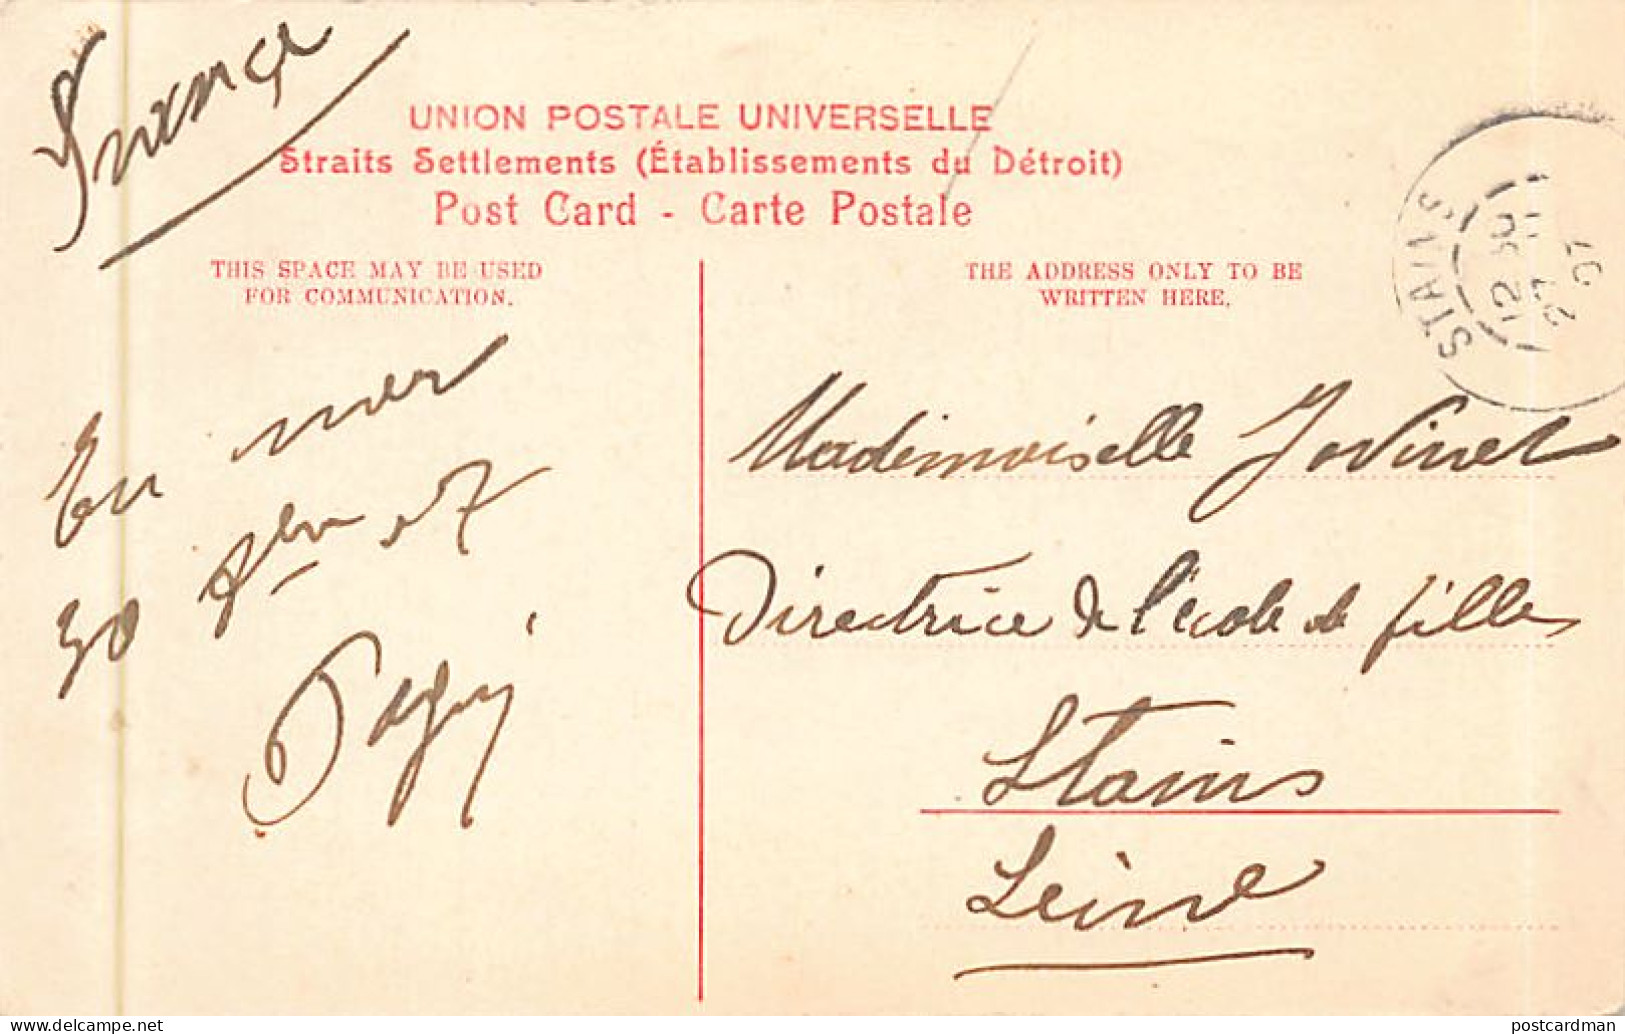 France
UNION POSTALE UNIVERSELLE
Straits Settlements (Établissements du Détroit)
Post Card - Carte Postale
THIS SPACE MAY BE USED
FOR COMMUNICATION.
THE ADDRESS ONLY TO BE
WRITTEN HERE.
STAINS
12 30
27 11
07
En mer
30 07
Mademoiselle Jovinet
Directrice de l'école de filles
Stains
Seine
postcardman